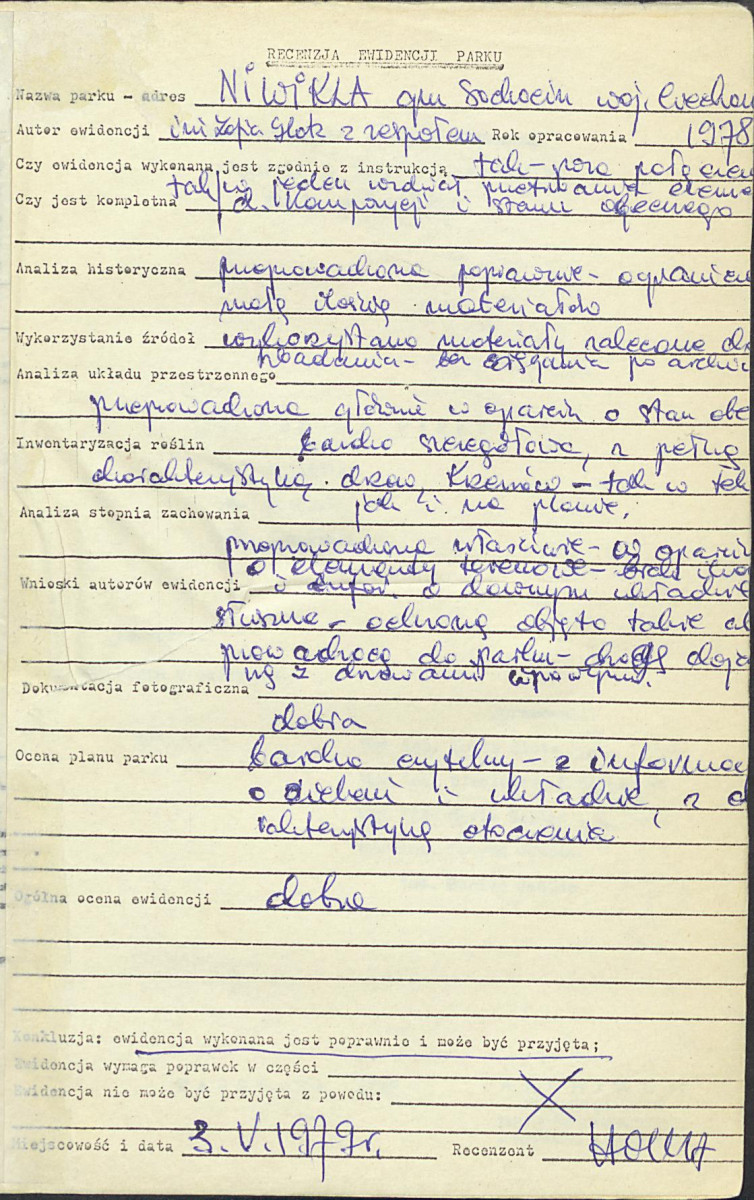 RECENZJA EWIDENCJI PARKU
Nazwa parku - adres NIWIKLA gm Sochocin woj. Ciechan
Autor ewidencji inż Zofia z zespołem Rok opracowania 1978
Czy ewidencja wykonana jest zgodnie z instrukcją tak - poza
tak, w jeden
Czy jest kompletna d. kompozycji i stanu obecnego
Analiza historyczna przeprowadzona poprawnie - ogranicz
małą ilością materiałów
Wykorzystanie źródeł wykorzystano materiały zalecone do
badania - bez sięgania po archiw
Analiza układu przestrzennego
przeprowadzona głównie w oparciu o stan obe
Inwentaryzacja roślin bardzo szczegółowa, z pełną
charakterystyką drzew, krzewów - tak w tek
Analiza stopnia zachowania jak i na planie.
przeprowadzona właściwie - w oparciu
o elementy terenowe - brak
Wnioski autorów ewidencji i infor. o dawnym układzie
słuszne - ochroną objęto także al
prowadzącą do parku - drogę doja
ną z drzewami
Dokumentacja fotograficzna
dobra
Ocena planu parku bardzo czytelny - z informac
o i układzie, z c
rakterystyką otoczenia
Ogólna ocena ewidencji dobra
Konkluzja: ewidencja wykonana jest poprawnie i może być przyjęta;
Ewidencja wymaga poprawek w części
Ewidencja nie może być przyjęta z powodu:
Miejscowość i data 3.V.1979r. Recenzent